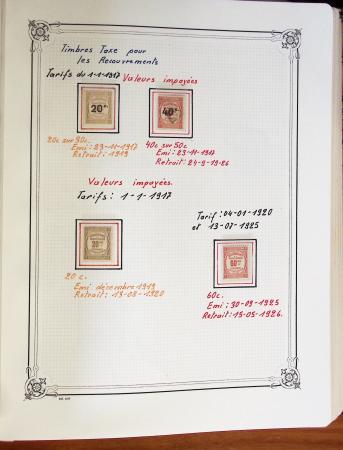 Timbres Taxe pour
les Recouvrements
Tarifs du 1-1-1917 Valeurs impayées
20ᶜ
40ᶜ
20c sur 30c.
Emi: 23-11-1917
Retrait: 1919
40c sur 50c
Emi: 23-11-1917
Retrait: 24-9-1926
Valeurs impayées.
Tarifs: 1-1-1917
Tarif: 04-01-1920
et 13-07-1925
20
60
20 c.
Emi décembre 1919
Retrait: 13-08-1920
60c.
Emi: 30-09-1925
Retrait: 15-05-1926.